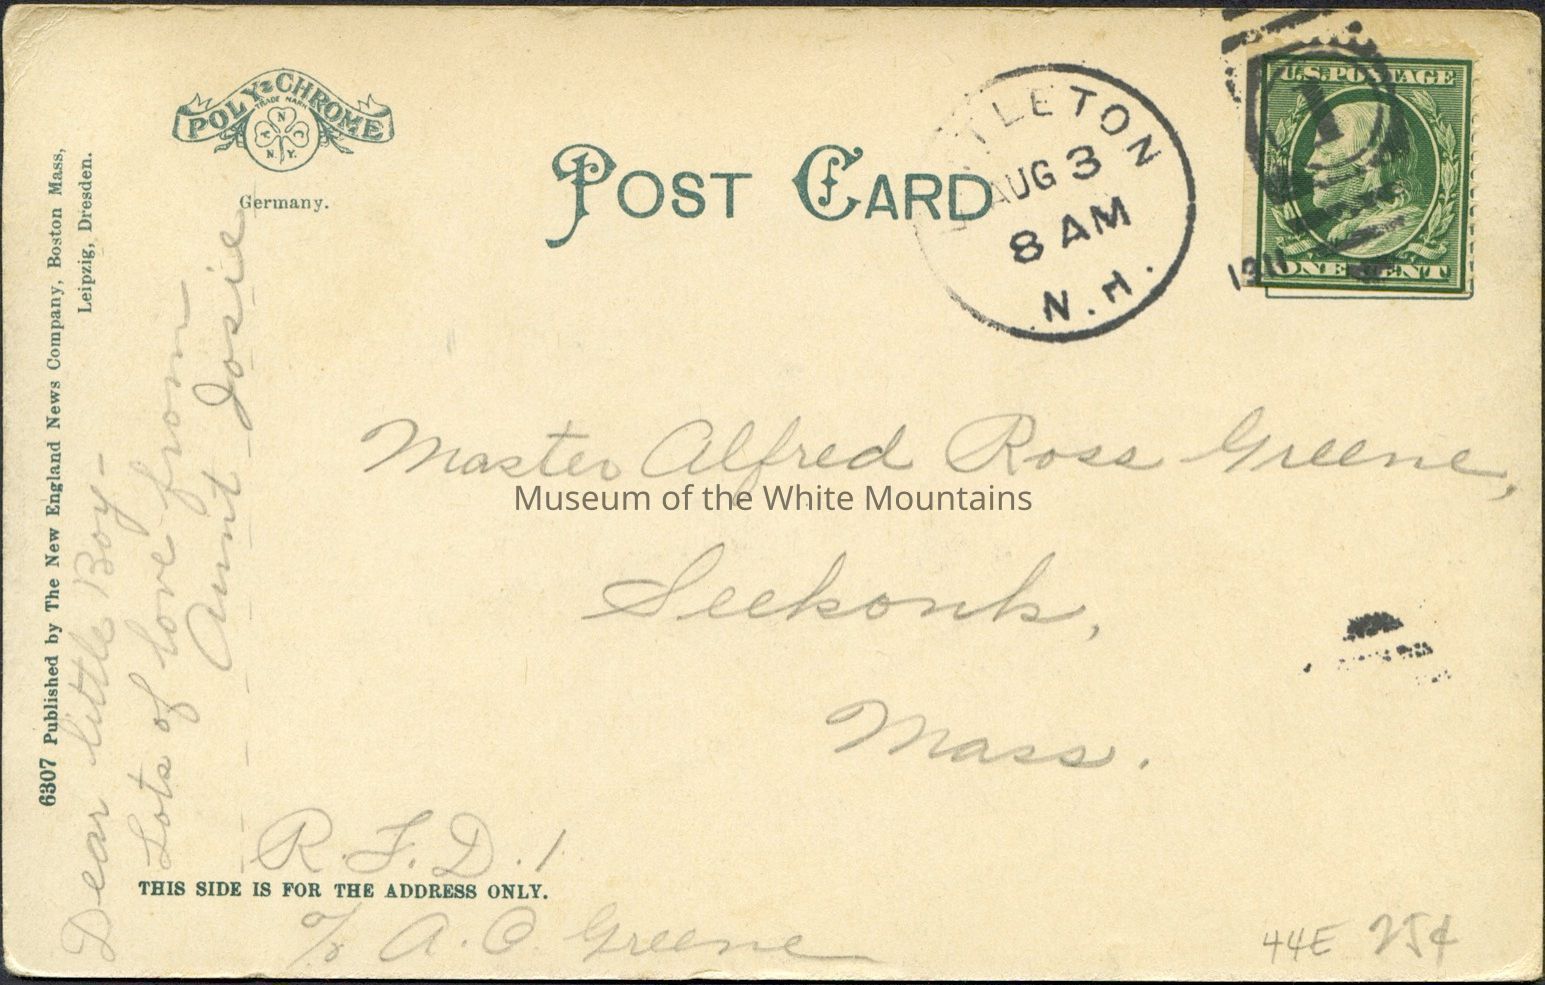 POLY-CHROME
TRADE MARK
N
A C
N. Y.
Germany.
POST CARD
LITTLETON
AUG 3
8 AM
N. H.
1911
U.S. POSTAGE
1
ONE CENT
6307 Published by The New England News Company, Boston Mass,
Leipzig, Dresden.
Dear little Boy-
Lots of love from
Aunt Josie
Master Alfred Ross Greene,
Museum of the White Mountains
Seekonk,
Mass.
R.F.D. 1
THIS SIDE IS FOR THE ADDRESS ONLY.
c/o A. O. Greene
44E 25¢